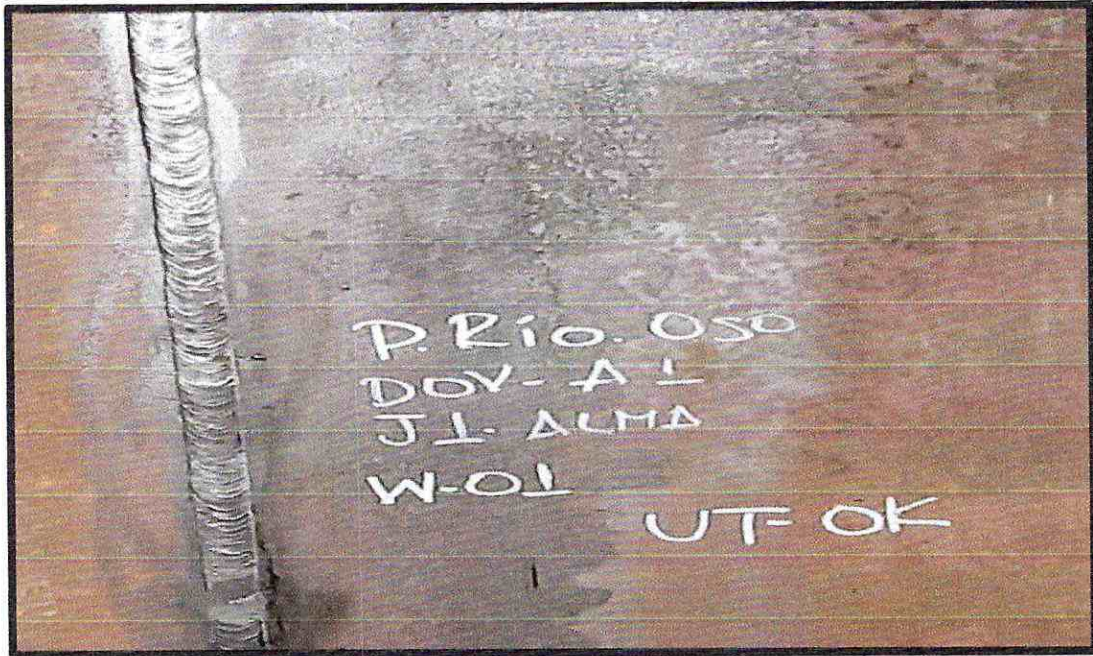 P. Río. Oso
DOV- A 1
J1- ALMA
W-01
UT- OK